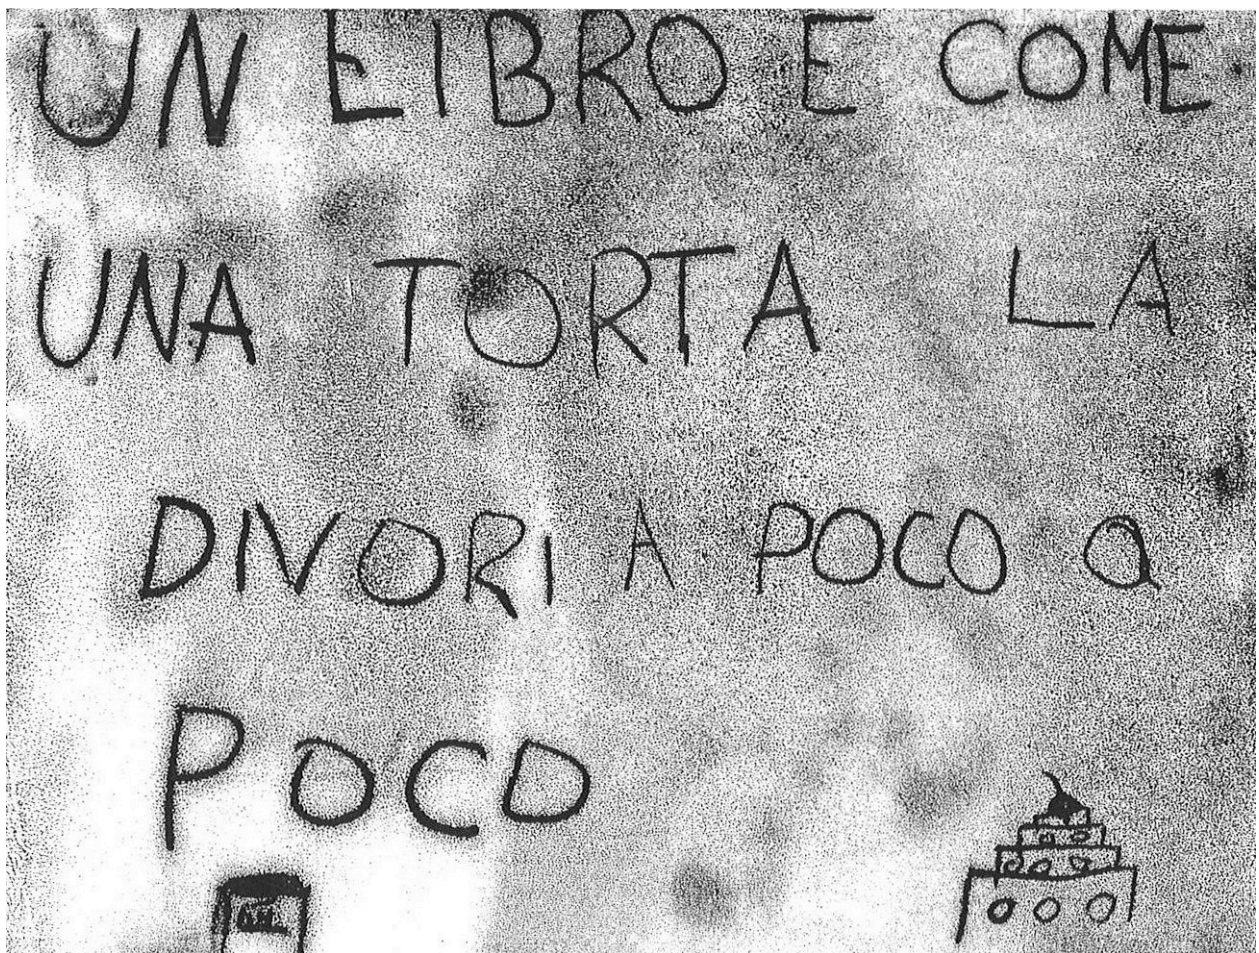 UN LIBRO E COME
UNA TORTA LA
DIVORI A POCO A
POCO